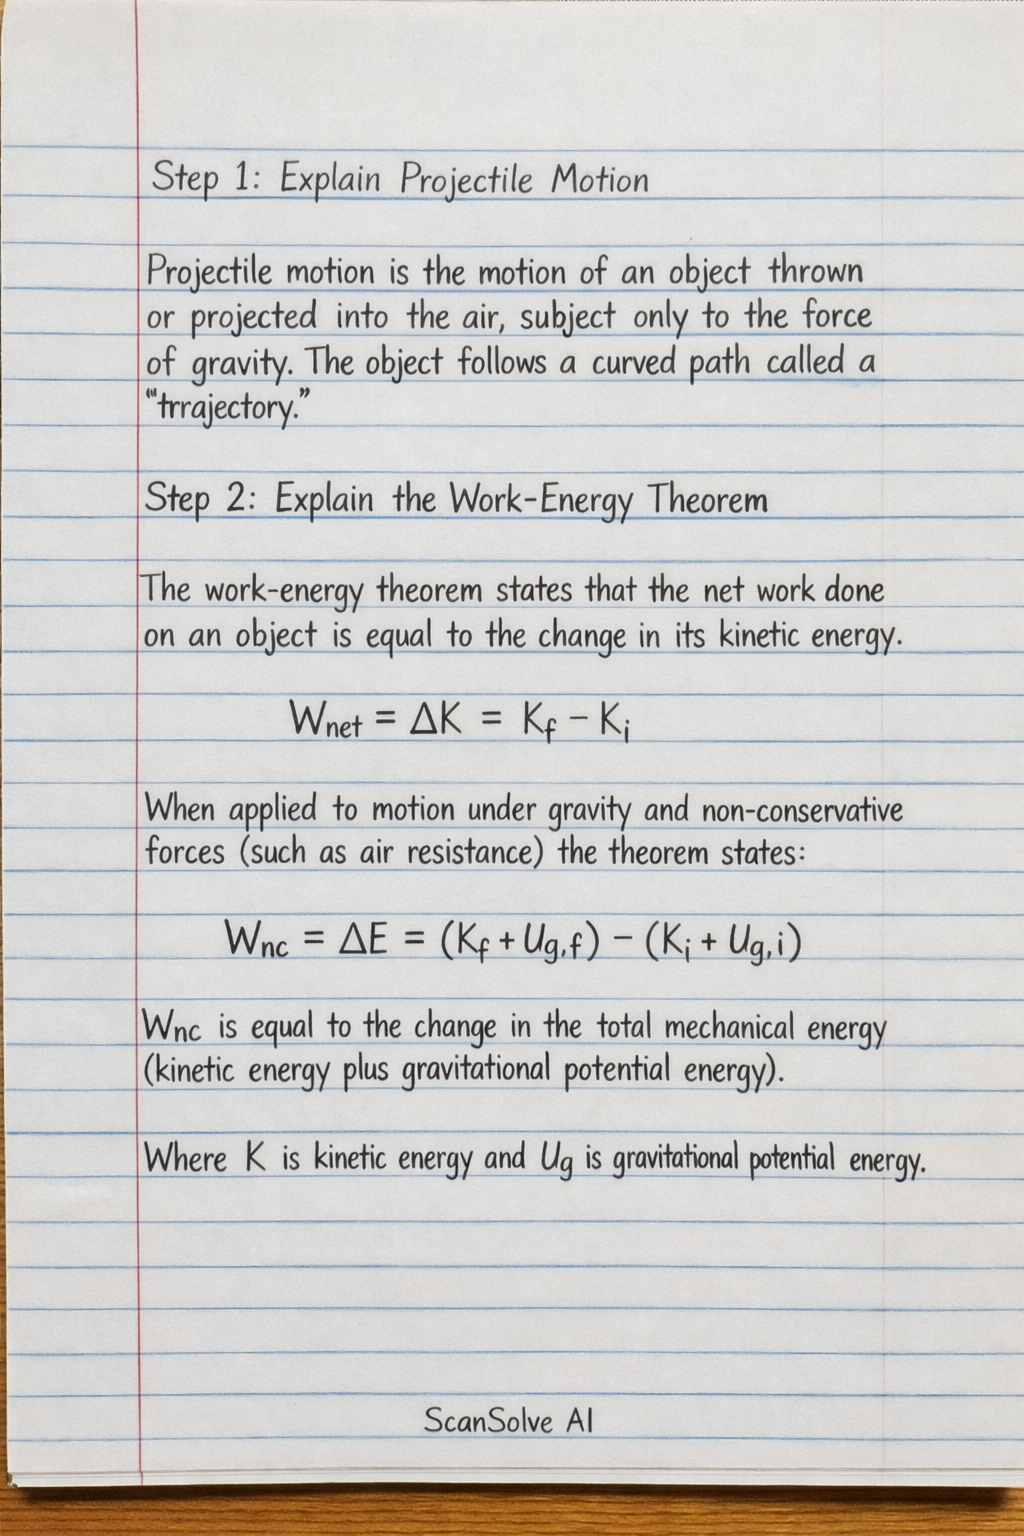 Step 1: Explain Projectile Motion
Projectile motion is the motion of an object thrown
or projected into the air, subject only to the force
of gravity. The object follows a curved path called a
"trrajectory."
Step 2: Explain the Work-Energy Theorem
The work-energy theorem states that the net work done
on an object is equal to the change in its kinetic energy.
Wnet = ΔK = Kf − Ki
When applied to motion under gravity and non-conservative
forces (such as air resistance) the theorem states:
Wnc = ΔE = (Kf + Ug,f) − (Ki + Ug,i)
Wnc is equal to the change in the total mechanical energy
(kinetic energy plus gravitational potential energy).
Where K is kinetic energy and Ug is gravitational potential energy.
ScanSolve AI